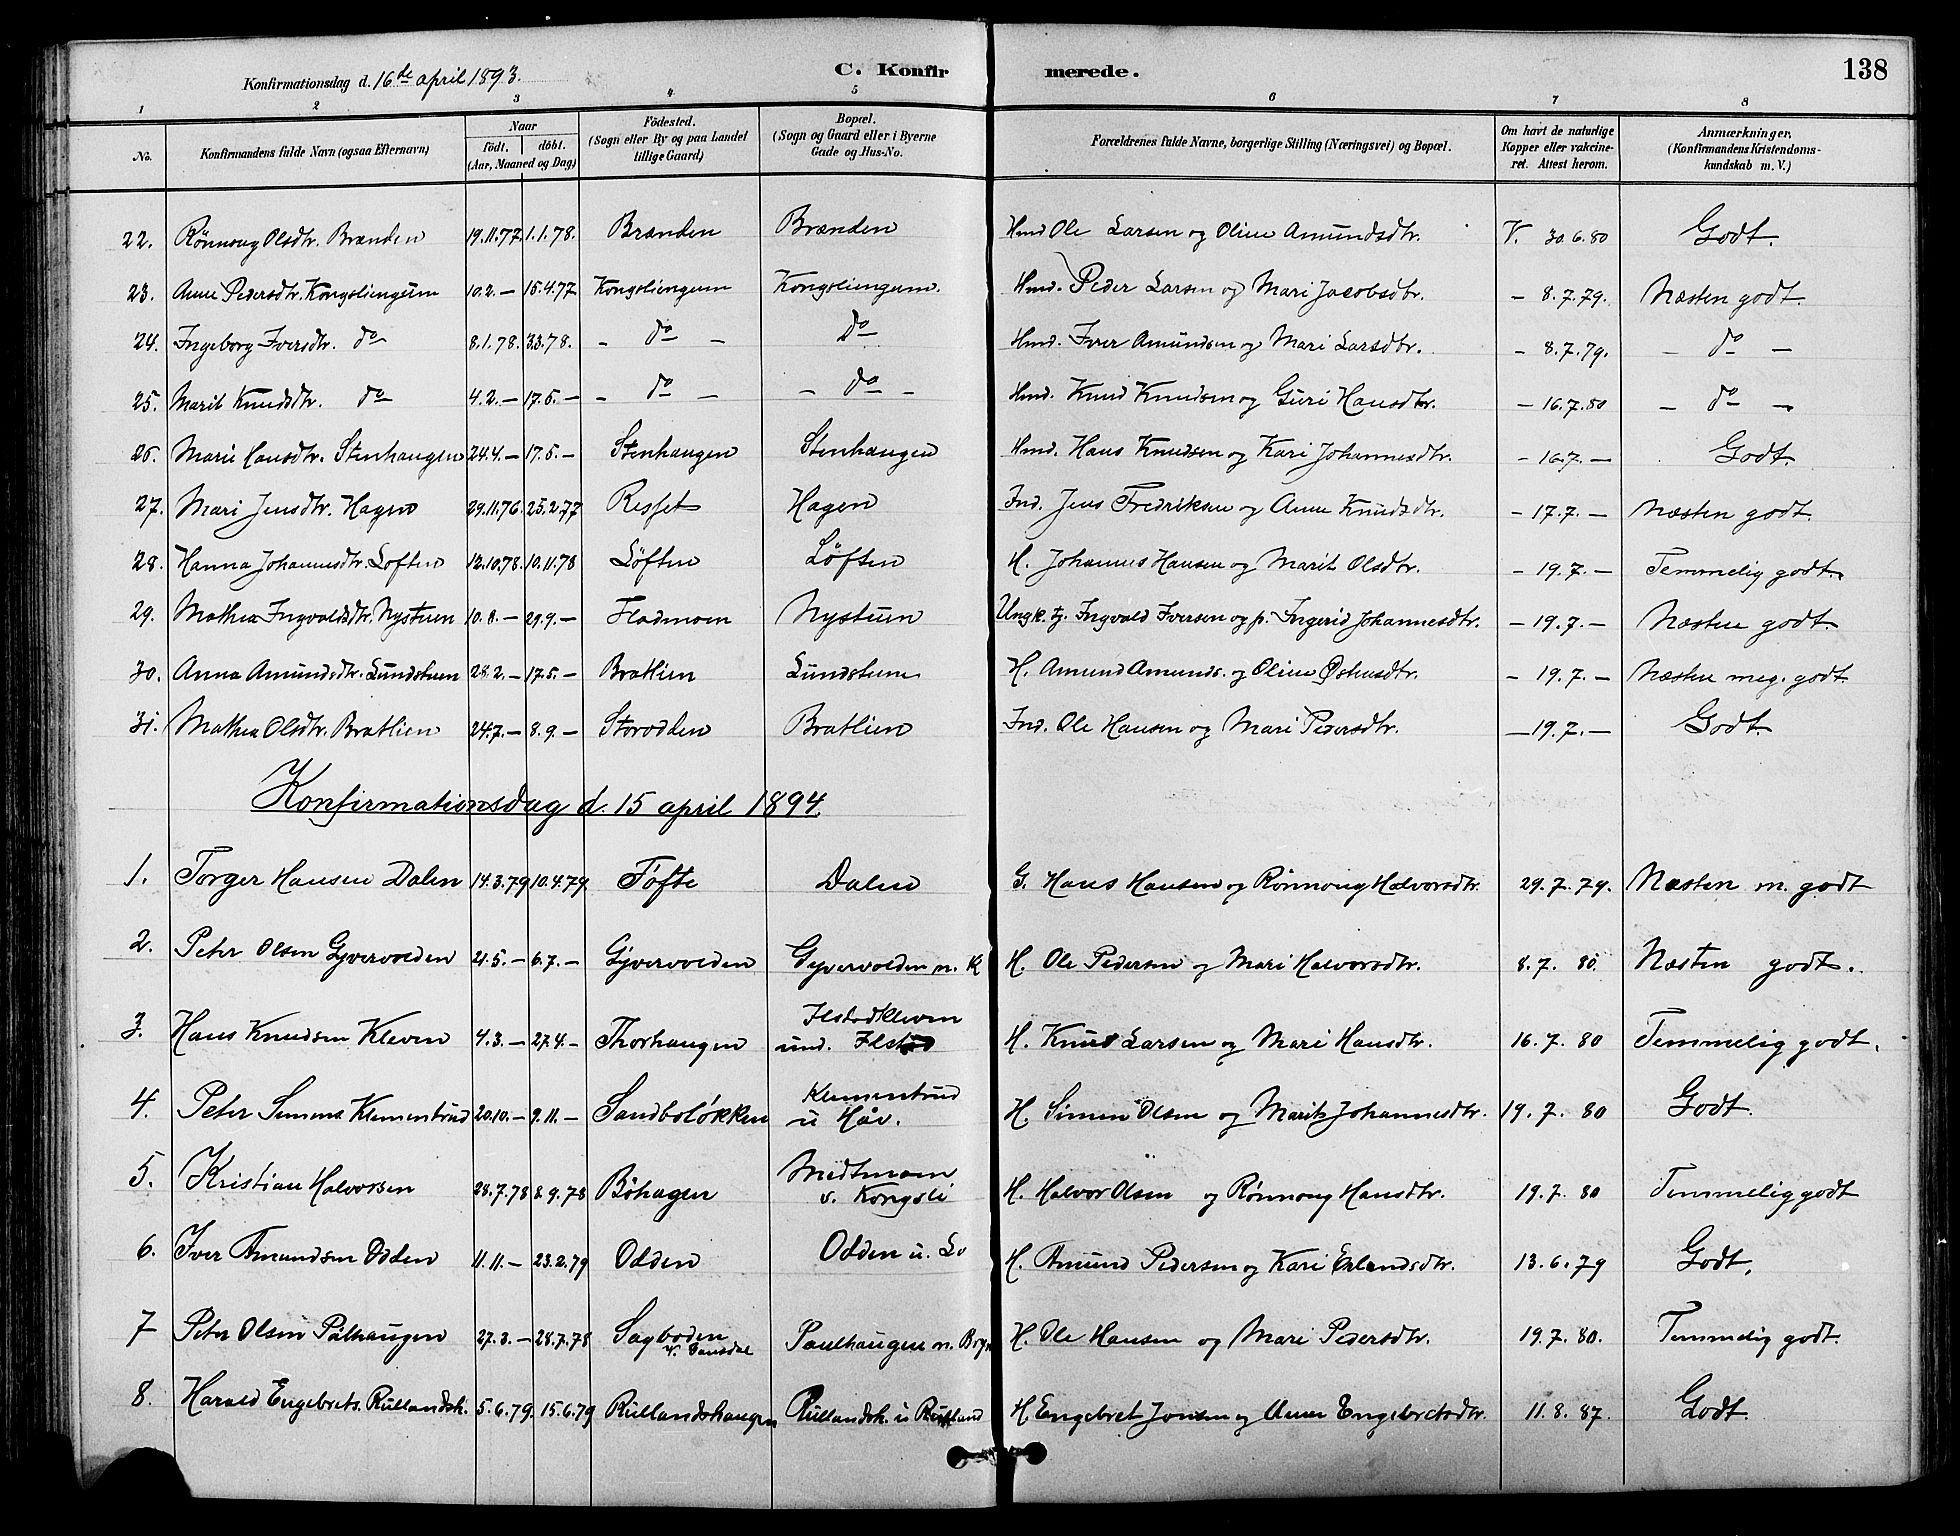 Konfirmationsdag d. 16de april 1893. C. Konfirmerede. 138
1 2 3 4 5 6 7 8
No. Konfirmandens fulde Navn (ogsaa Efternavn) Naar født. døbt. (Aar, Maaned og Dag) Fødested. (Sogn eller By og paa Landet tillige Gaard) Bopæl. (Sogn og Gaard eller i Byerne Gade og Hus-No. Forældrenes fulde Navne, borgerlige Stilling (Næringsvei) og Bopæl. Om havt de naturlige Kopper eller vakcineret. Attest herom. Anmærkninger. (Konfirmandens Kristendomskundskab m. V.)
22. Rønnoug Olsdtr. Brænden 19.11.77. 1.1.78. Brænden Brænden Hmd Ole Larsen og Oline Amundsdtr. V. 30.6.80 Godt.
23. Anne Pedersdtr. Kongsliengum 10.2.— 15.4.77 Kongsliengum Kongsliengum. Hmd. Peder Larsen og Mari Jacobsdtr. — 8.7.79. Næsten godt
24. Ingeborg Iversdtr. do 8.1.78. 3.3.78. — do — do Hmd. Iver Amundsen og Mari Larsdtr. — 8.7.79. — do —
25. Marit Knudsdtr. do 4.2.— 17.5.— — do — — do — Hmd. Knud Knudsen og Guri Hansdtr. — 16.7.80 — do —
26. Marie Hansdtr. Stenhaugen 24.4.— 17.5.— Stenhaugen Stenhaugen Hmd. Hans Knudsen og Kari Johannesdtr. — 16.7.— Godt.
27. Mari Jensdtr. Hagen 29.11.76. 25.2.77 Resset Hagen Ind. Jens Fredriksen og Anne Knudsdtr. — 17.7.— Næsten godt.
28. Hanna Johannesdtr. Løften 12.10.78. 10.11.78 Løften Løften H. Johannes Hansen og Marit Olsdtr. — 19.7.— Temmelig godt.
29. Mathea Ingvaldsdtr. Nystuen 10.8.— 29.9.— Fladmoen Nystuen Ungk. tj. Ingvald Iversen og p. Ingerid Johannesdtr. — 19.7.— Næsten godt.
30. Anna Amundsdtr. Lundstuen 28.2.— 17.5.— Bratlien Lundstuen H. Amund Amunds. og Oline Østensdtr. — 19.7.— Næsten meg. godt.
31. Mathea Olsdtr. Bratlien 24.7.— 8.9.— Storodden Bratlien Ind. Ole Hansen og Mari Pedersdtr. — 19.7.— Godt.
Konfirmationsdag d. 15 april 1894.
1. Torger Hansen Dalen 14.3.79 10.4.79. Tofte Dalen G. Hans Hansen og Rønnoug Halvorsdtr. 29.7.79. Næsten m. godt
2. Peter Olsen Gyvervolden 21.5.— 6.7.— Gyvervolden Gyvervolden n. K H. Ole Pedersen og Mari Halvorsdtr. 8.7.80. Næsten godt.
3. Hans Knudsen Kleven 4.3.— 27.4.— Thorhaugen Ilstadkleven und. Ilstad H. Knud Larsen og Mari Hansdtr. 16.7.80 Temmelig godt.
4. Peter Simens. Klementrud 20.10.— 9.11.— Sandboløkken Klementrud u Håv. H. Simen Olsen og Marit Johannesdtr. 19.7.80 Godt.
5. Kristian Halvorsen 28.7.78 8.9.78 Bøhagen Midtmoen v. Kongsli H. Halvor Olsen og Rønnoug Hansdtr. 19.7.80 Temmelig godt
6. Iver Amundsen Odden 11.11.— 23.2.79 Odden Odden u. Lo H. Amund Pedersen og Kari Erlandsdtr. 13.6.79 Godt.
7 Peter Olsen Pålhaugen 27.3.— 28.7.78 Sagboden v. Gausdal Paulhaugen n. H. Ole Hansen og Mari Pedersdtr. 19.7.80. Temmelig godt.
8. Harald Engebrets. Rullandsh. 5.6.79. 15.6.79 Rullandshaugen Rullandsh. u Rulland H. Engebret Jonsen og Anne Engebretsdtr. 11.8.87. Godt.